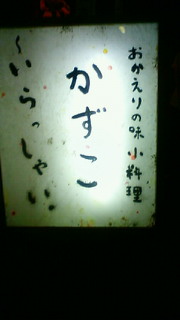 おかえりの味 小料理
かずこ
〜いらっしゃい。